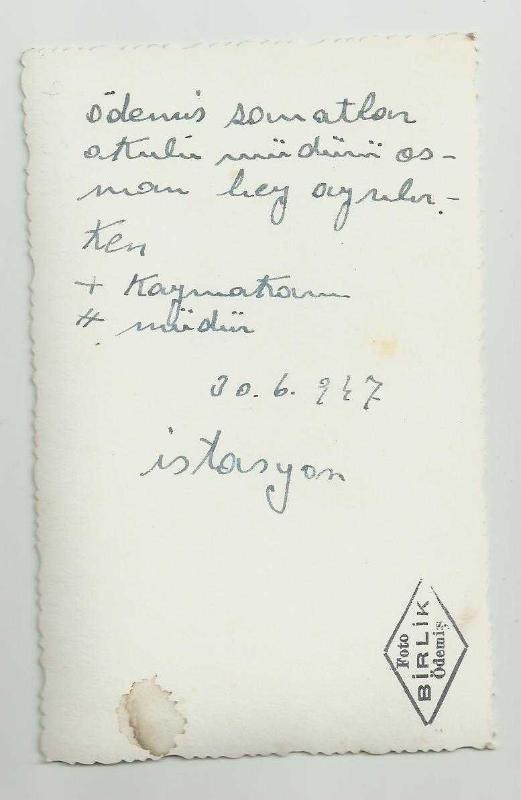 ödemis sanatlar
okulu müdürü os-
man bey ayrılır-
ken
+ Kaymakam
# müdür
30.6.947
istasyon
Foto
BİRLİK
Ödemiş